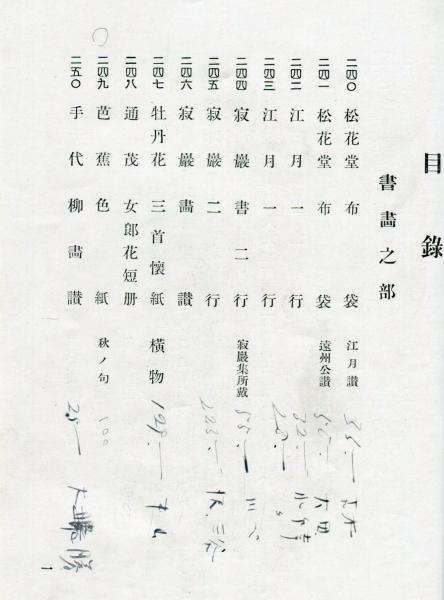 目錄
書畫之部
二四〇 松花堂 布袋 江月讃
二四一 松花堂 布袋 遠州公讃
二四二 江月一行
二四三 江月一行
二四四 寂嚴書二行 寂嚴集所戴
二四五 寂嚴二行
二四六 寂嚴畫讃
二四七 牡丹花 三首懷紙 橫物
二四八 通茂 女郎花短册
二四九 芭蕉色紙 秋ノ句 100
二五〇 手代柳畫讃
一